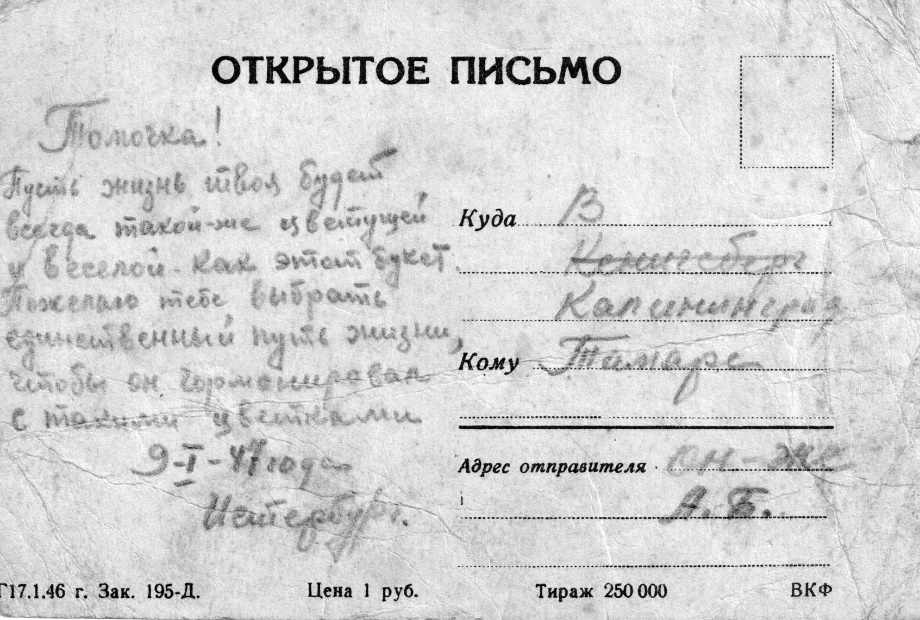 ОТКРЫТОЕ ПИСЬМО
Томочка!
Пусть жизнь твоя будет
всегда такой-же цветущей
и веселой. как этот букет.
Пожелаю тебе выбрать
единственный путь жизни,
чтобы он гормонировал
с такими цветками
9-I-47 года
Куда В
Кенигсберг
Калининград
Кому Тамаре
Адрес отправителя он-же
А. Б.
Г17.1.46 г. Зак. 195-Д.
Цена 1 руб.
Тираж 250 000
ВКФ